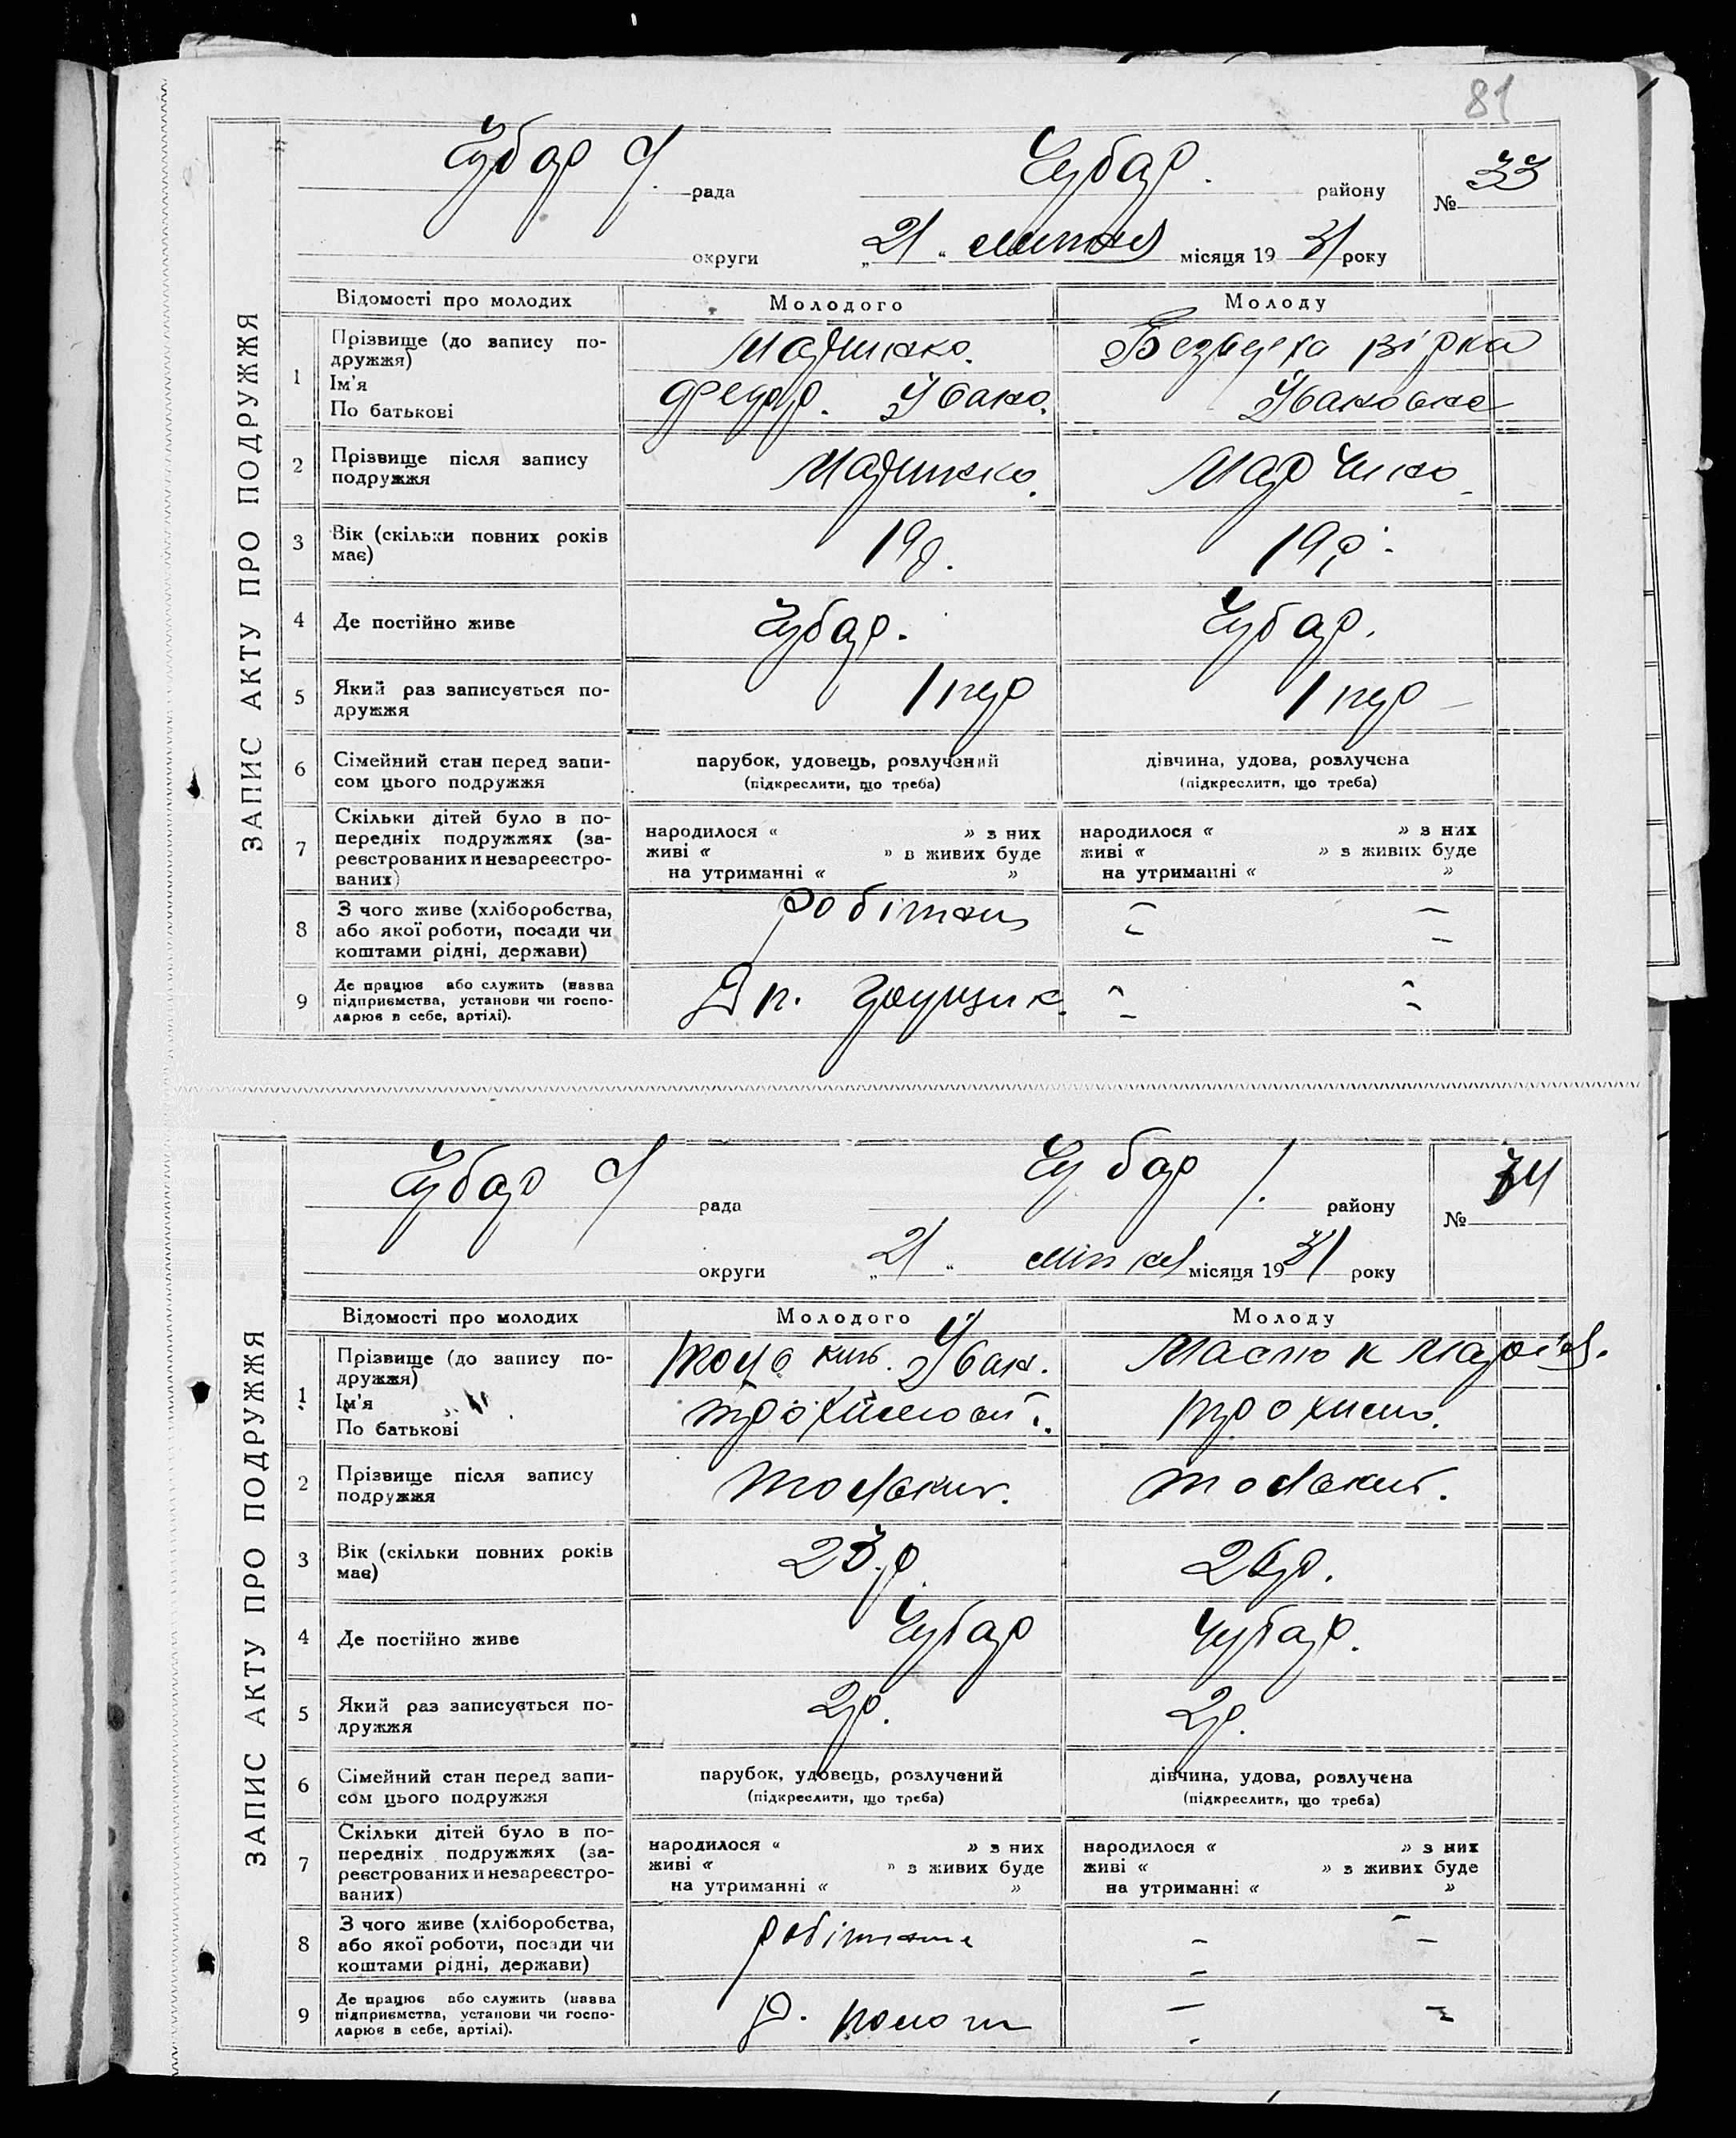 81
ЗАПИС АКТУ ПРО ПОДРУЖЖЯ
Чубар рада Чубар. району № 33
округи „21“ липня місяця 1931 року
Відомості про молодих Молодого Молоду
1 Прізвище (до запису подружжя)
Ім'я
По батькові
Марченко. Безверха Вірка
Федор. Івано. Івановна
2 Прізвище після запису
подружжя
Марченко. Марченко
3 Вік (скільки повних років
має)
19 р. 19 р.
4 Де постійно живе Чубар. Чубар.
5 Який раз записується по-
дружжя
1 пер 1 пер
6 Сімейний стан перед запи-
сом цього подружжя
парубок, удовець, розлучений дівчина, удова, розлучена
(підкреслити, що треба) (підкреслити, що треба)
7 Скільки дітей було в по-
передніх подружжях (за-
реєстрованих и незареєстро-
ваних)
народилося « » з них народилося « » з них
живі « » в живих буде живі « » з живих буде
на утриманні « » на утриманні « »
8 З чого живе (хліборобства,
або якої роботи, посади чи
коштами рідні, держави)
робітник
9 Де працює або служить (назва
підприємства, установи чи госпо-
дарює в себе, артілі).
ЗАПИС АКТУ ПРО ПОДРУЖЖЯ
Чубар рада Чубар району № 34
округи „21“ липня місяця 1931 року
Відомості про молодих Молодого Молоду
1 Прізвище (до запису по-
дружжя)
Ім'я
По батькові
Іван. Маслюк Марія.
Трохимови Трохимо.
2 Прізвище після запису
подружжя
3 Вік (скільки повних років
має)
23 р. 26 р.
4 Де постійно живе Чубар Чубар.
5 Який раз записується по-
дружжя
2 р. 2 р.
6 Сімейний стан перед запи-
сом цього подружжя
парубок, удовець, розлучений дівчина, удова, розлучена
(підкреслити, що треба) (підкреслити, що треба)
7 Скільки дітей було в по-
передніх подружжях (за-
реєстрованих и незареєстро-
ваних)
народилося « » з них народилося « » з них
живі « » з живих буде живі « » з живих буде
на утриманні « » на утриманні « »
8 З чого живе (хліборобства,
або якої роботи, посади чи
коштами рідні, держави)
робітник
9 Де працює або служить (назва
підприємства, установи чи госпо-
дарює в себе, артілі).